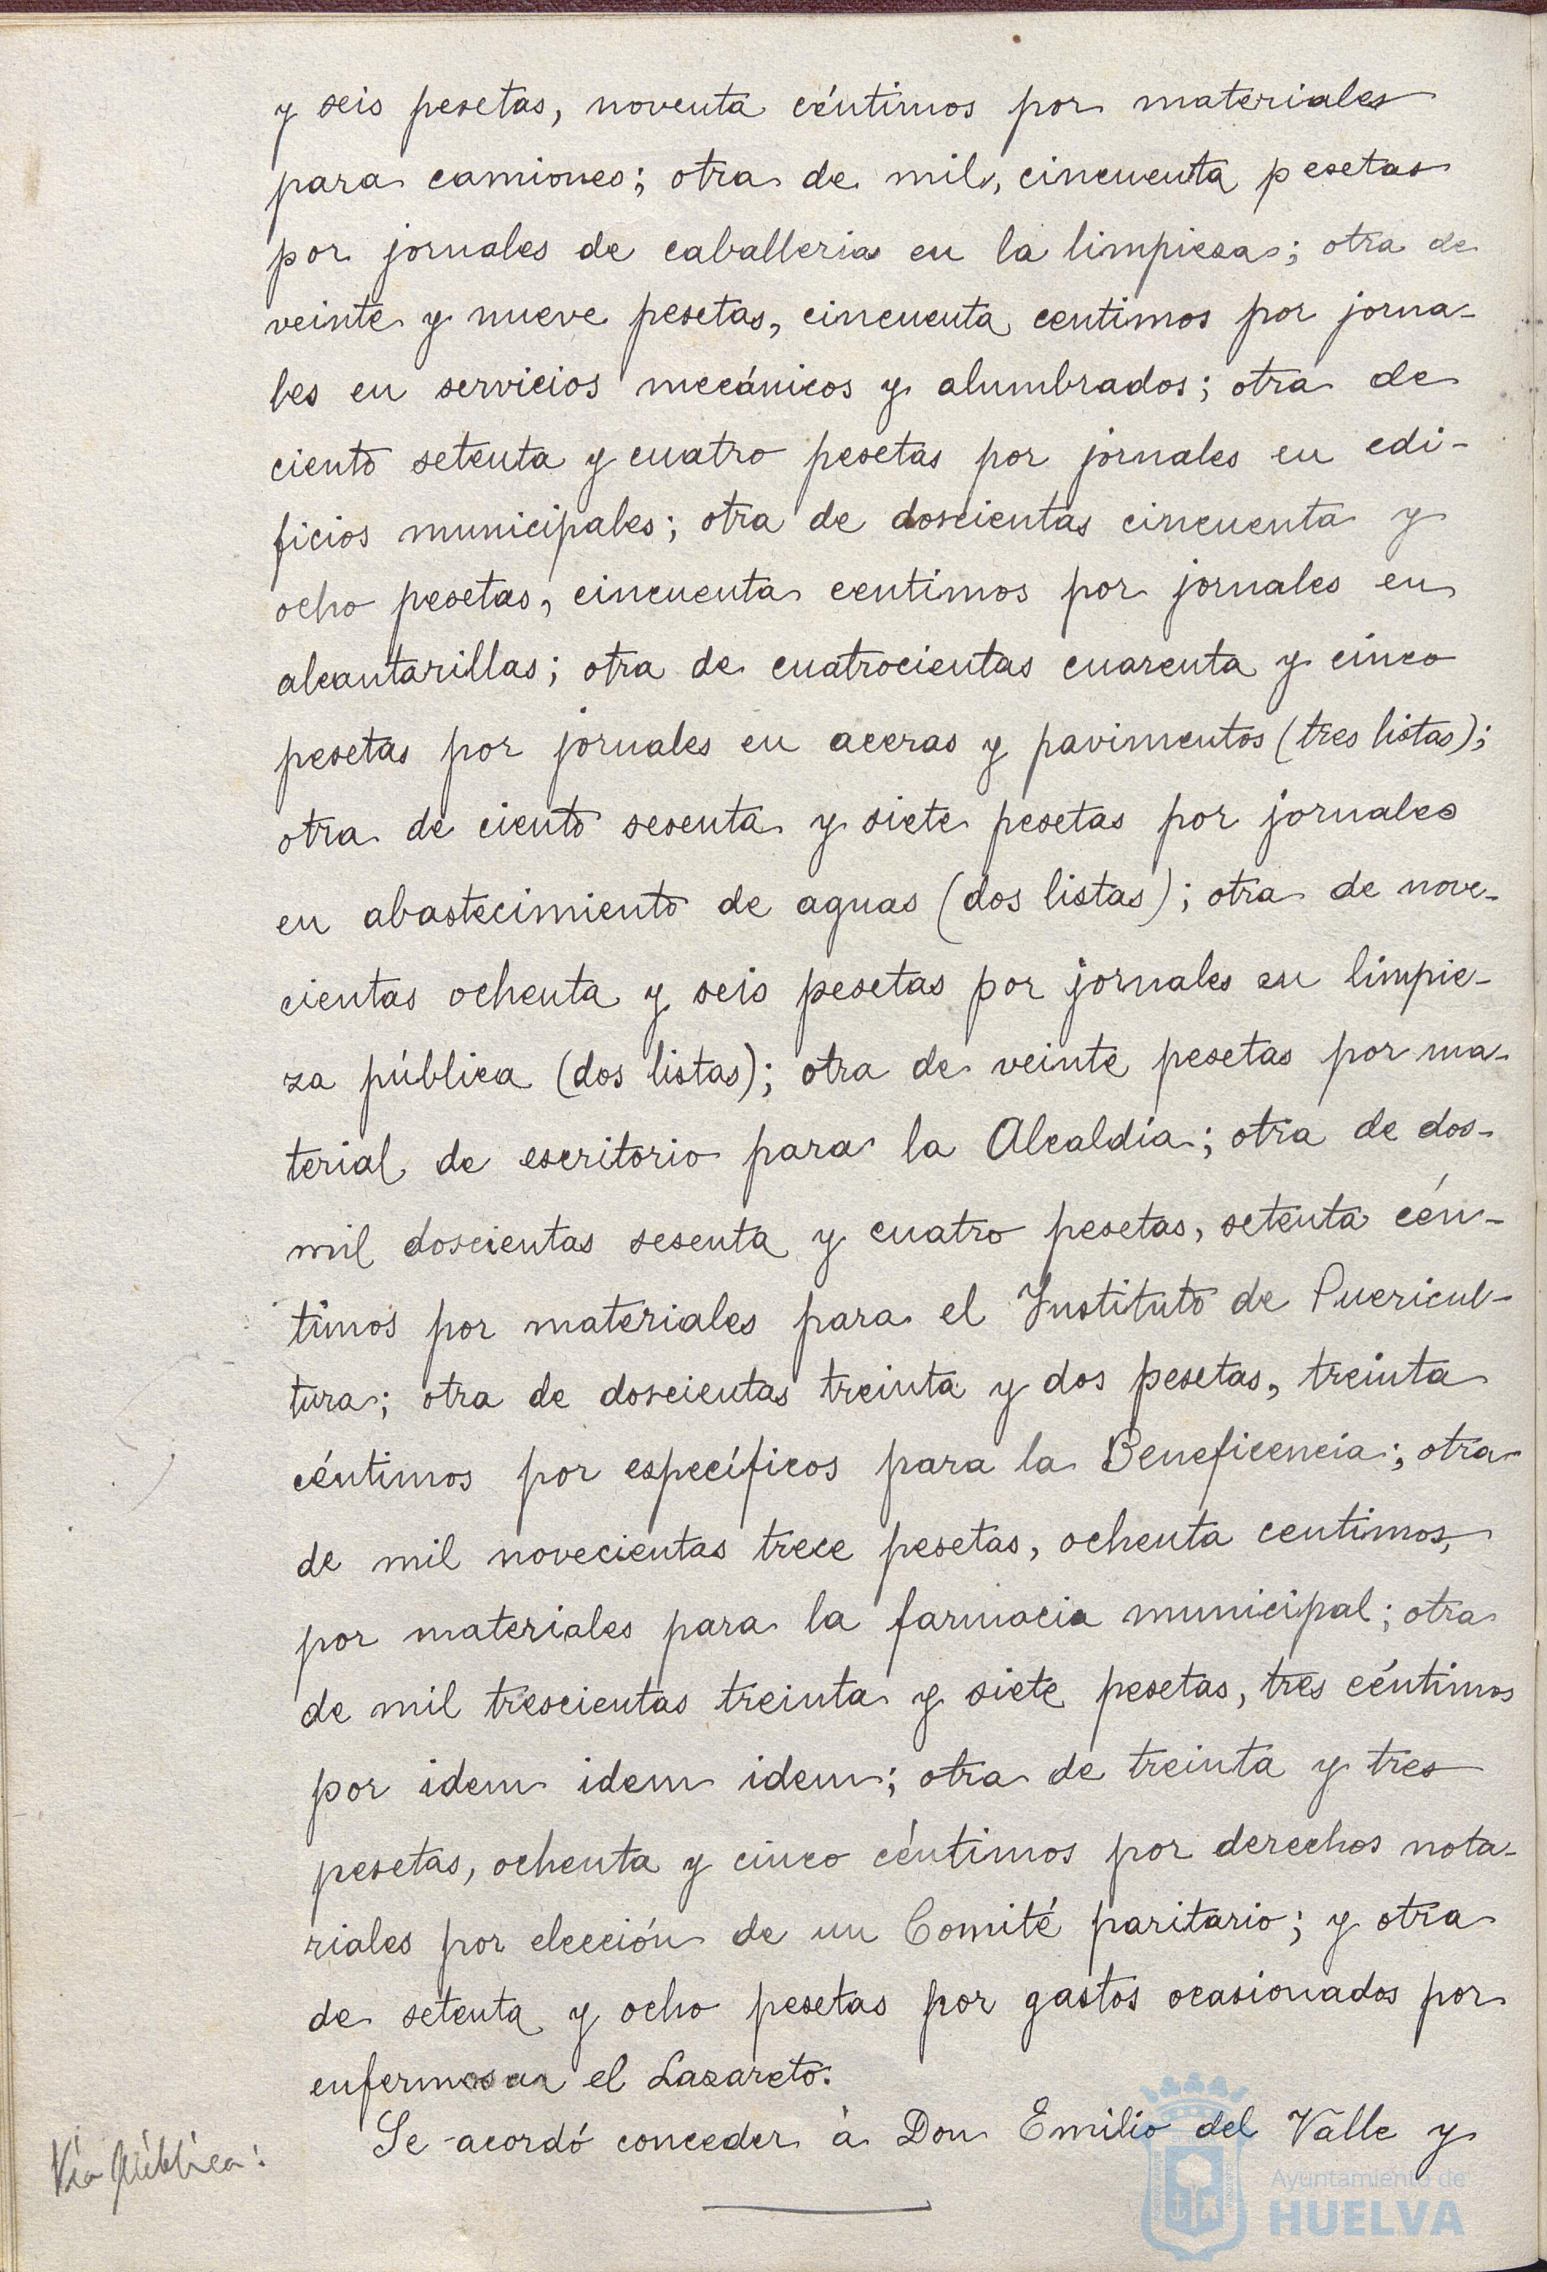 y seis pesetas, noventa céntimos por materiales
para camiones; otra de mil, cincuenta pesetas
por jornales de caballerias en la limpieza; otra de
veinte y nueve pesetas, cincuenta centimos por jorna-
les en servicios mecánicos y alumbrados; otra de
ciento setenta y cuatro pesetas por jornales en edi-
ficios municipales; otra de doscientas cincuenta y
ocho pesetas, cincuenta centimos por jornales en
alcantarillas; otra de cuatrocientas cuarenta y cinco
pesetas por jornales en aceras y pavimentos (tres listas);
otra de ciento sesenta y siete pesetas por jornales
en abastecimiento de aguas (dos listas); otra de nove-
cientas ochenta y seis pesetas por jornales en limpie-
za pública (dos listas); otra de veinte pesetas por ma-
terial de escritorio para la Alcaldía; otra de dos-
mil doscientas sesenta y cuatro pesetas, setenta cén-
timos por materiales para el Instituto de Puericul-
tura; otra de doscientas treinta y dos pesetas, treinta
céntimos por específicos para la Beneficencia; otra
de mil novecientas trece pesetas, ochenta centimos,
por materiales para la farmacia municipal; otra
de mil trescientas treinta y siete pesetas, tres céntimos
por idem idem idem; otra de treinta y tres
pesetas, ochenta y cinco céntimos por derechos nota-
riales por elección de un Comité paritario; y otra
de setenta y ocho pesetas por gastos ocasionados por
enfermos en el Lazareto.
Vía pública:
Se acordó conceder à Don Emilio del Valle y
Ayuntamiento de
HUELVA